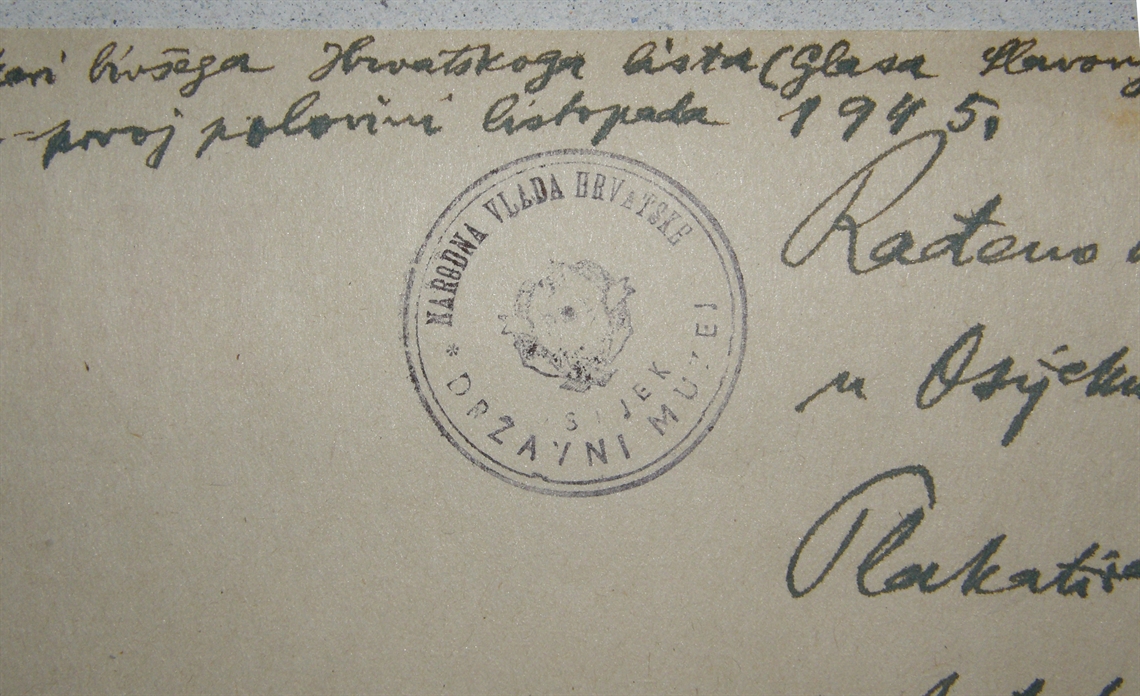 bivšega Hrvatskoga lista (Glasa Slavony
prvoj polovini listopada 1945.
NARODNA VLADA HRVATSKE
* DRŽAVNI MUZEJ
OSIJEK
Rađeno
u Osijeku
Plakatira